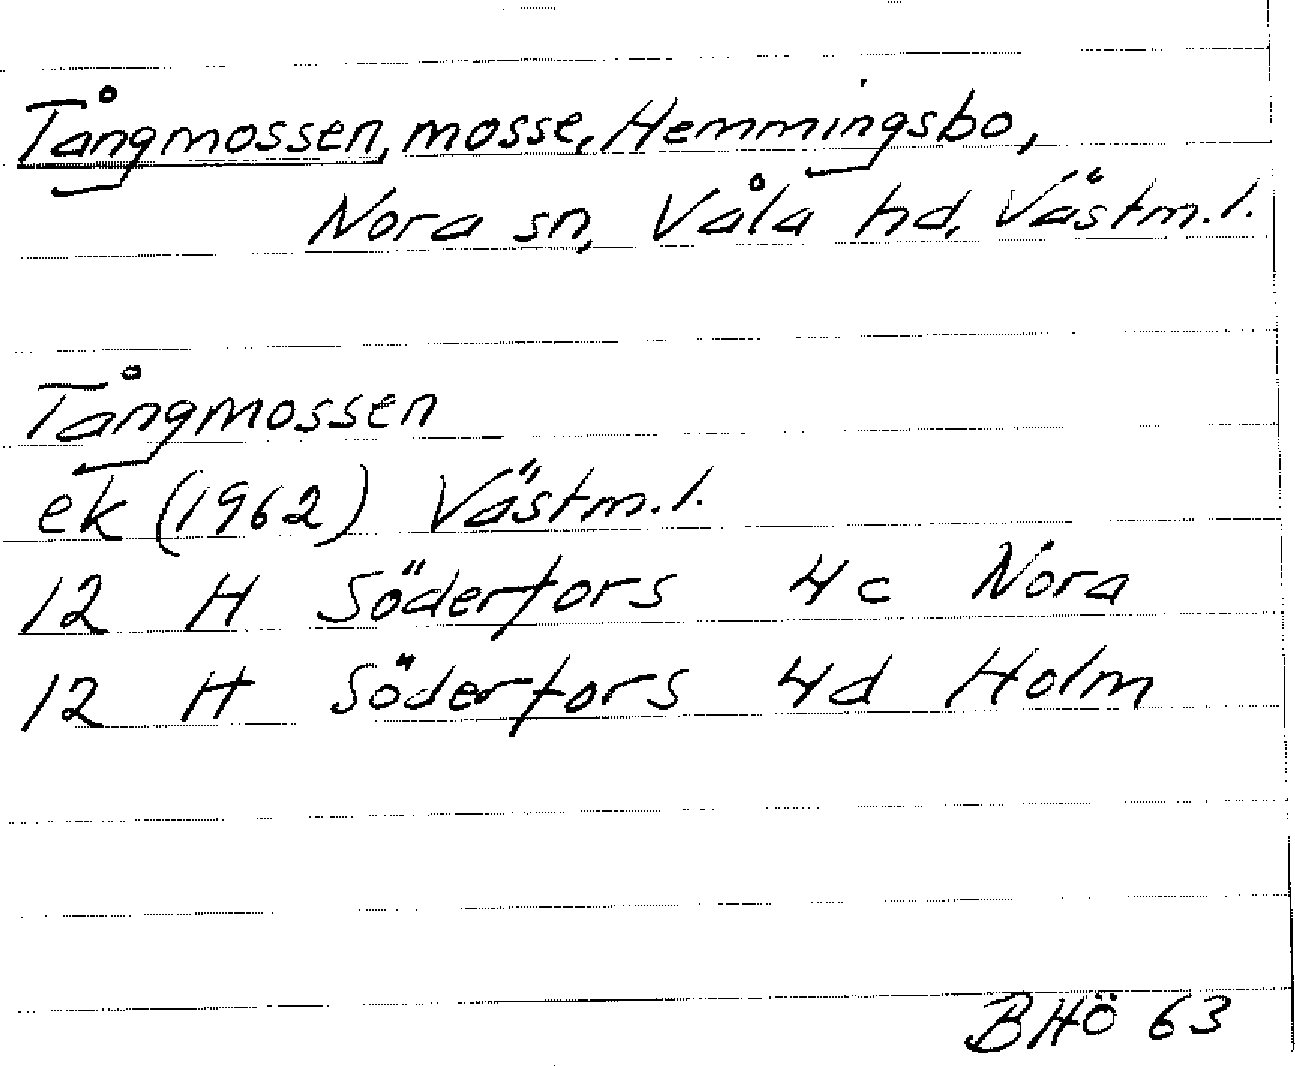 Tångmossen, mosse, Hemmingsbo,
Nora sn, Våla hd, Västm.l.
Tångmossen
ek (1962) Västm.l.
12 H Söderfors 4c Nora
12 H Söderfors 4d Holm
BHö 63